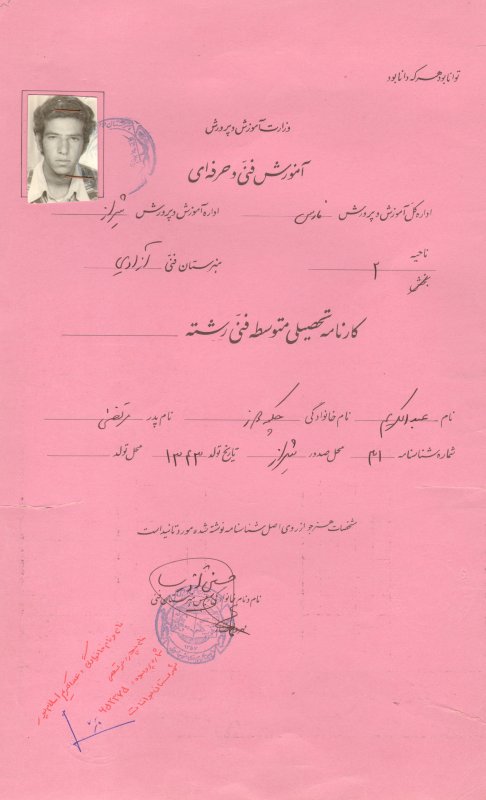 توانا بود هر که دانا بود
وزارت آموزش و پرورش
آموزش فنی و حرفه‌ای
اداره کل آموزش و پرورش فارس اداره آموزش و پرورش شیراز
ناحیه ۲ هنرستان فنی آزادی
بخش
کارنامه تحصیلی متوسطه فنی رشته
نام عبدالکریم نام خانوادگی نام پدر مرتضی
شماره شناسنامه ۳۱ محل صدور شیراز تاریخ تولد ۱۳۴۳ محل تولد
مشخصات هنرجو از روی اصل شناسنامه نوشته شده مورد تائید است
نام و نام خانوادگی رئیس هنرستان فنی